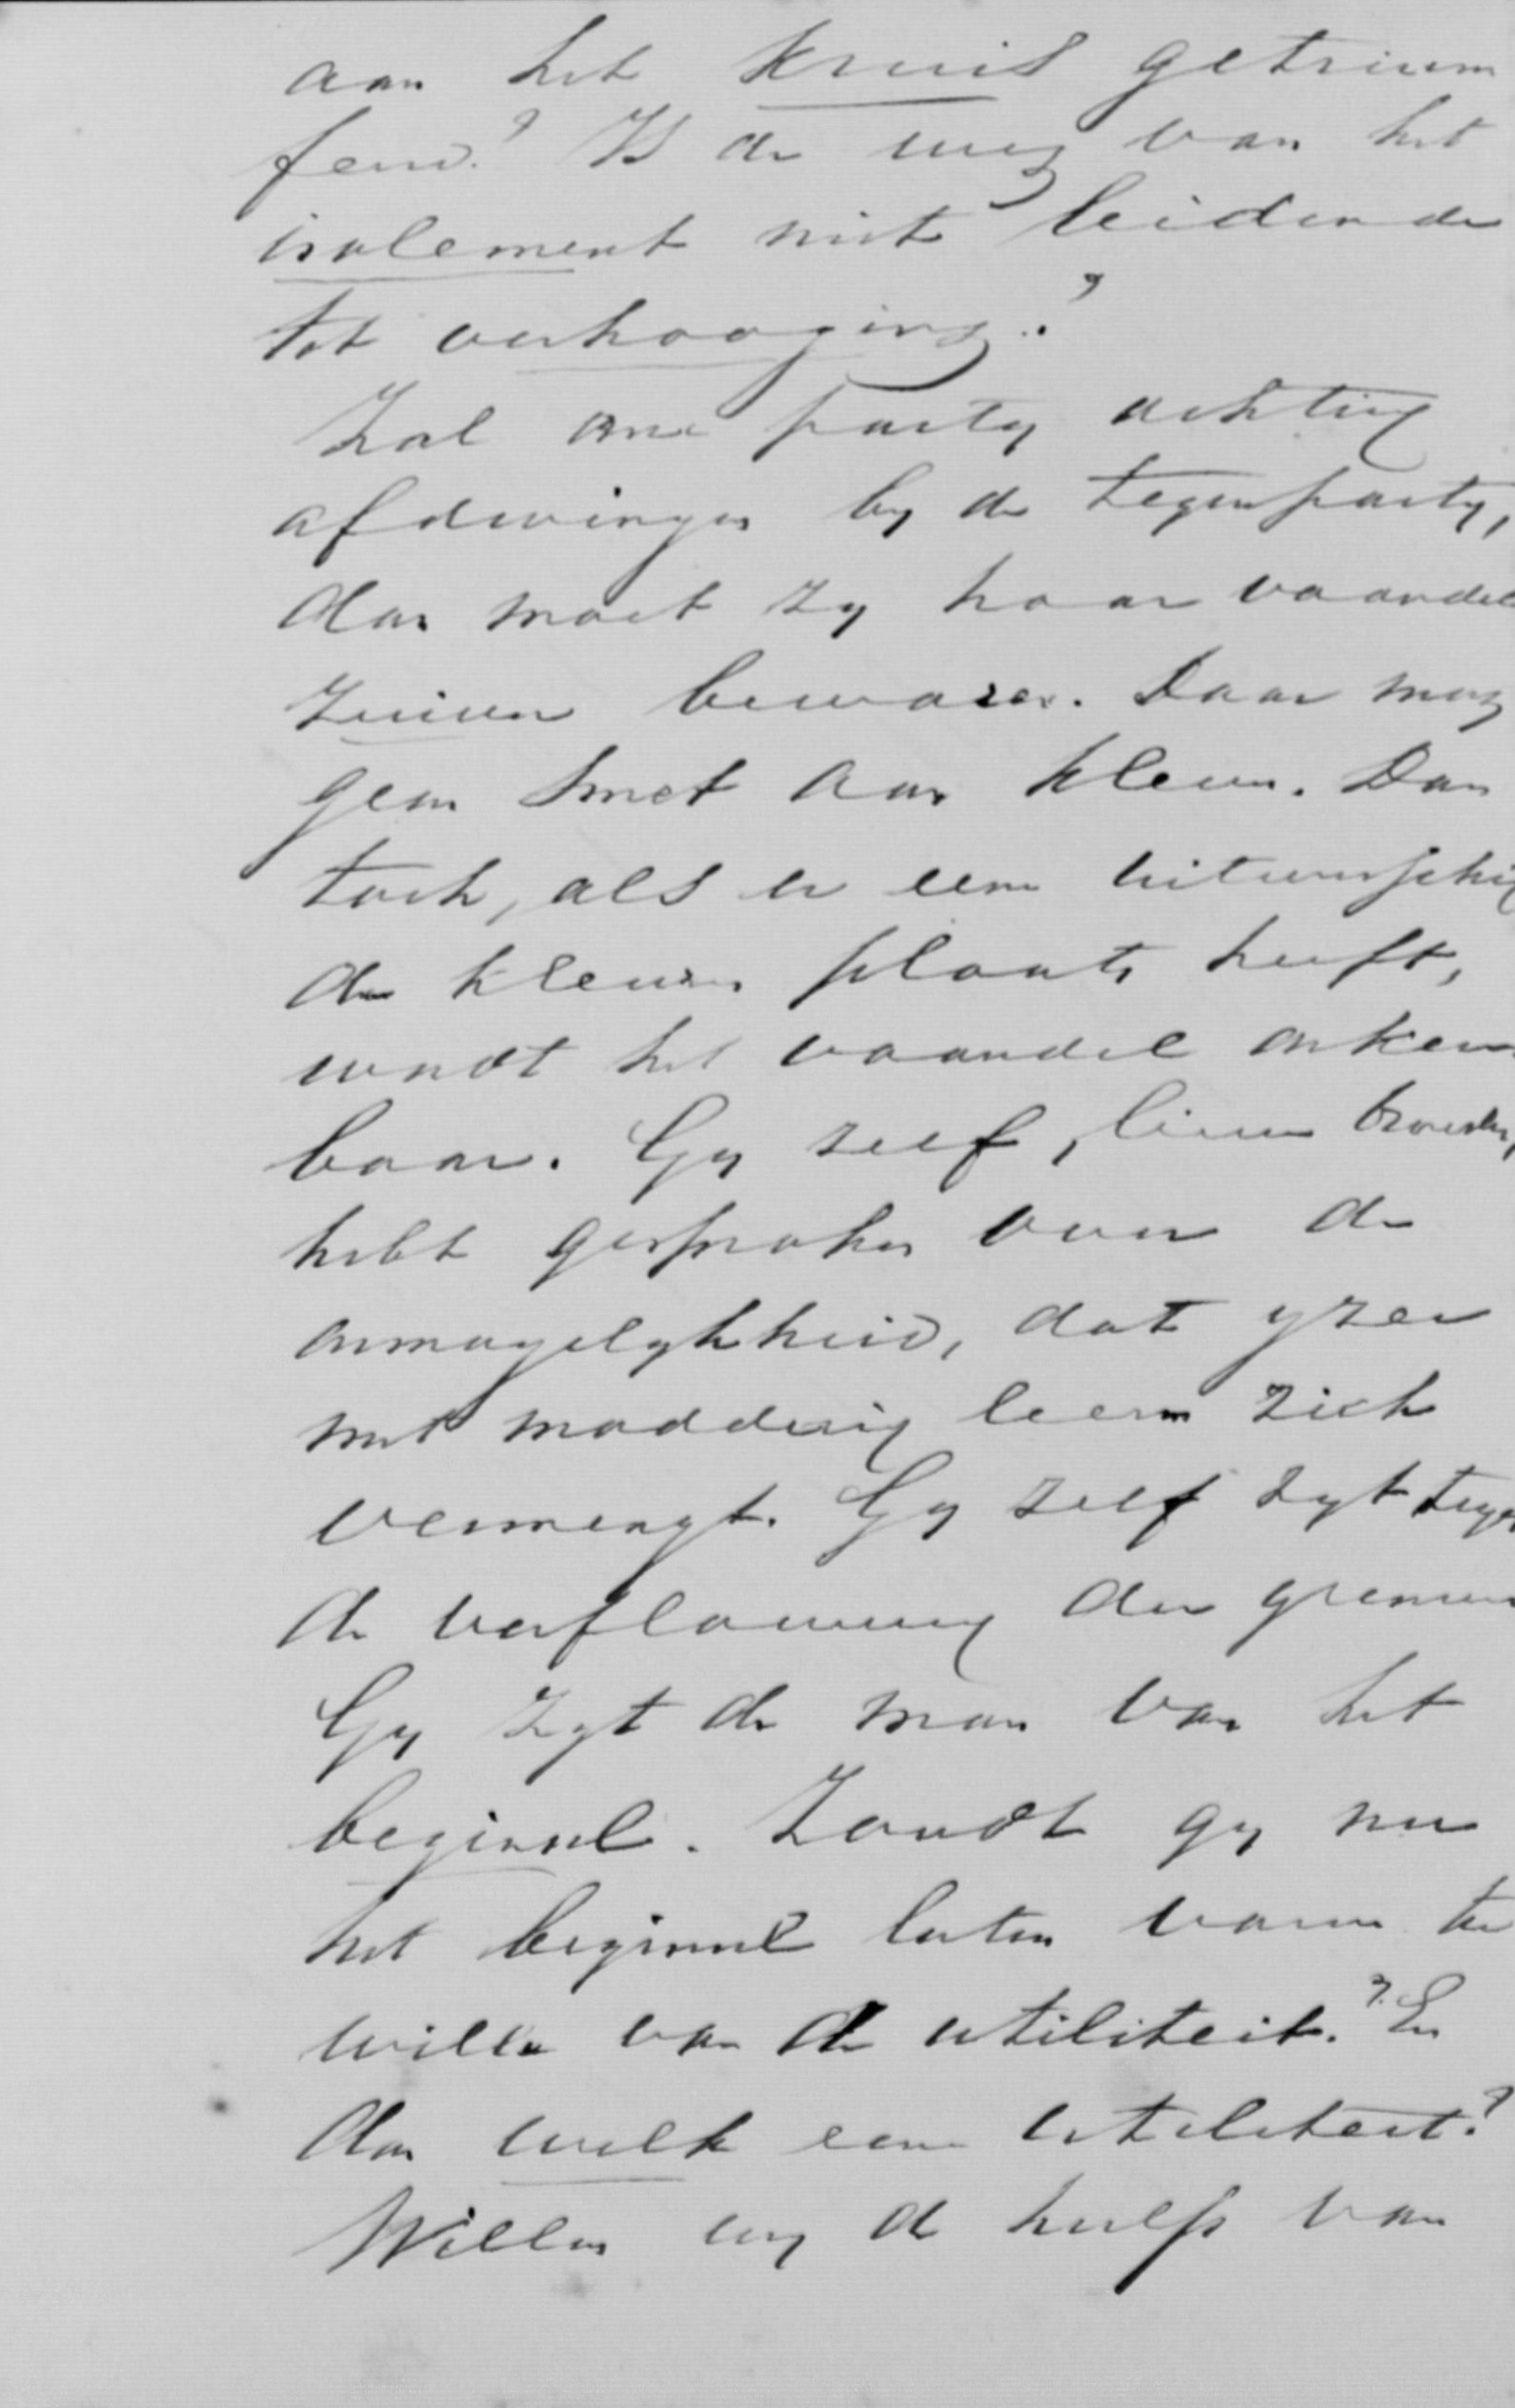 aan het kruis getrium
feerd? Is de weg van het
isolement niet leidende
tot verhooging?
Zal onze party achting
afdwingen by de tegenparty,
dan moet zy haar vaandel
zuiver bewaren. Daar mag
geen smet aan kleven. Dan
toch, als er een uitwissching
der kleuren plaats heeft,
wordt het vaandel onken
baar. Gy zelf, lieve broeder,
hebt gesproken over de
onmogelykheid, dat yzer
met modderig leem zich
vermengt. Gy zelf zyt tegen
de verflauwing der grenzen
Gy zyt de man van het
beginsel. Zoudt gy nu
het beginsel laten varen ter
wille van de utiliteit? En
dan welk eene utiliteit?
Willen wy de hulp van